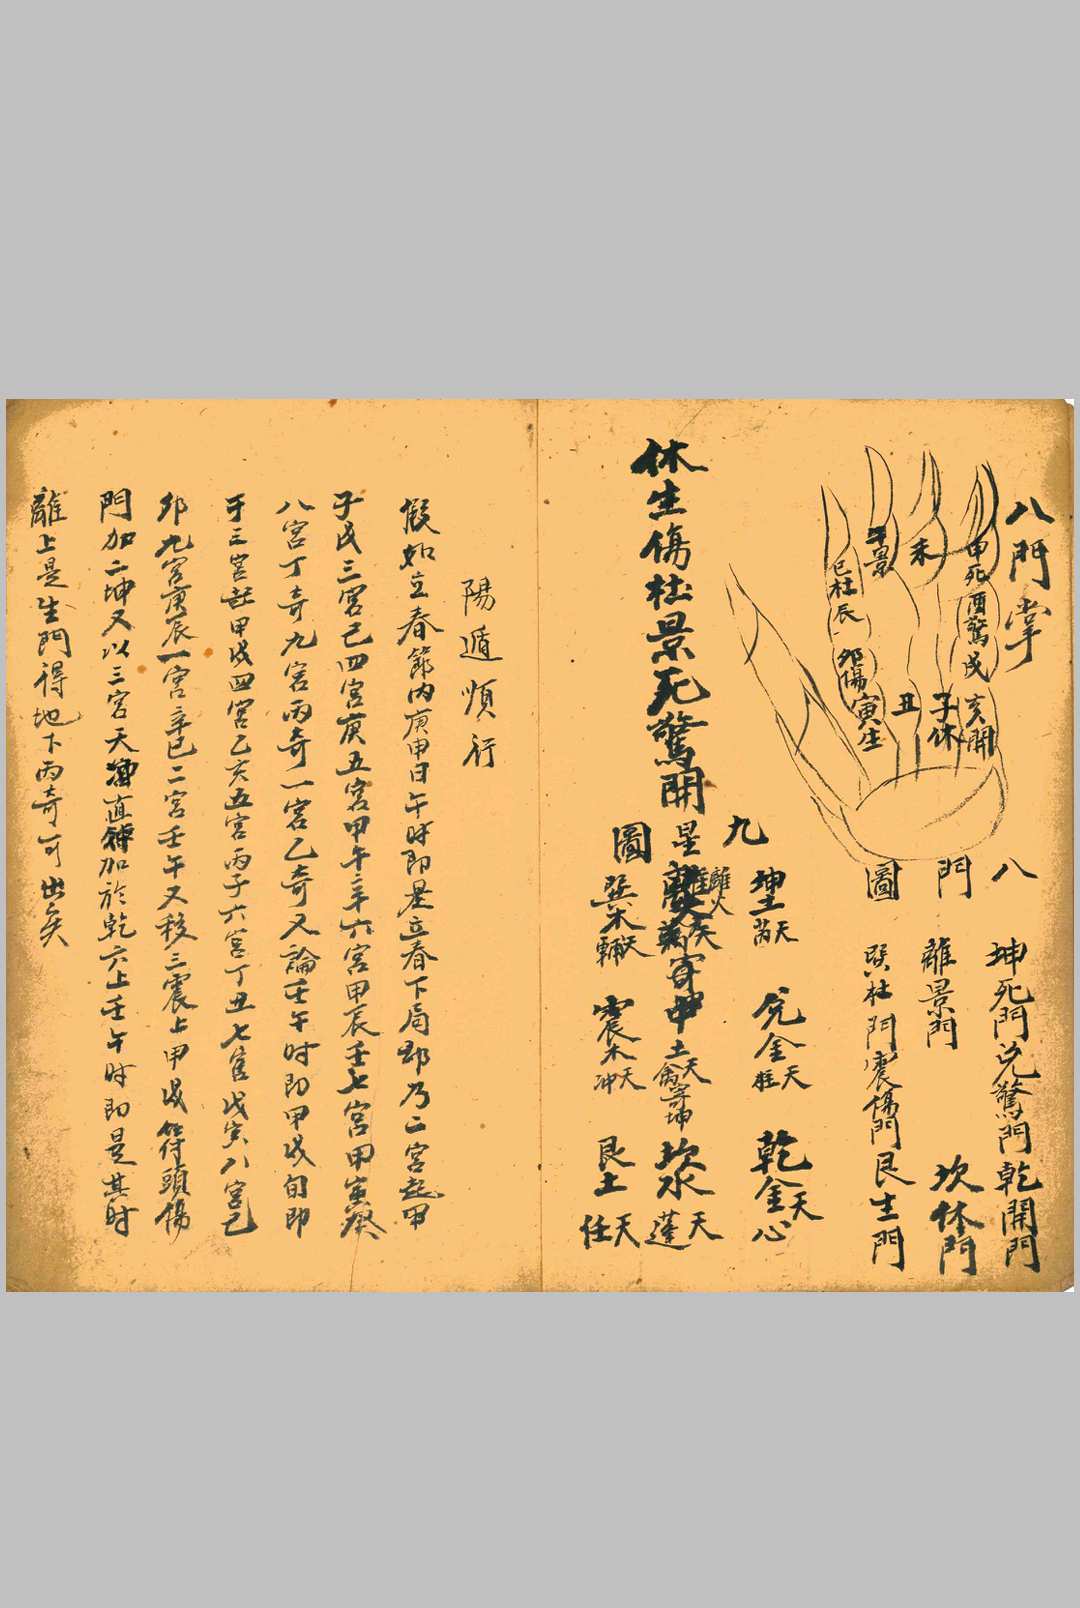 八門掌
申死
酉驚
戌
亥開
未
子休
午景
丑
巳杜
辰
卯傷
寅生
八門圖
坤死門兌驚門乾開門
離景門
坎休門
巽杜門震傷門艮生門
休生傷杜景死驚開
九星圖
坤土天芮
兌金天柱
乾金天心
離火
寄中土天禽寄坤
坎水天蓬
巽木天輔
震木天冲
艮土天任
陽遁順行
假如立春節內庚申日午时即是立春下局即乃二宮起甲
子戊三宮己四宮庚五宮甲午辛六宮甲辰壬七宮甲寅癸
八宮丁奇九宮丙奇一宮乙奇又論壬午时即甲戌旬即
于三宮起甲戌四宮乙亥五宮丙子六宮丁丑七宮戊寅八宮己
卯九宮庚辰一宮辛巳二宮壬午又移三震上甲戌符頭傷
門加二坤又以三宮天冲直符加於乾六上壬午时即是其时
離上是生門得地下丙奇可出矣